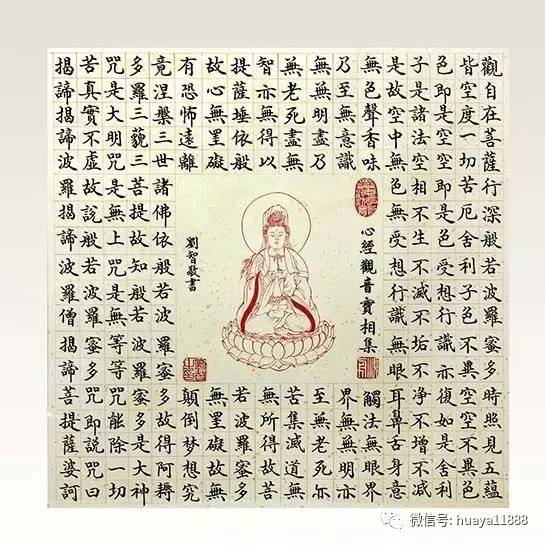 觀自在菩薩行深般若波羅蜜多時照見五蘊
皆空度一切苦厄舍利子色不異空空不異色
色即是空空即是色受想行識亦復如是舍利
子是諸法空相不生不滅不垢不淨不增不減
是故空中無色無受想行識無眼耳鼻舌身意
無色聲香味
觸法無眼界
乃至無意識
界無無明亦
無無明盡乃
至無老死亦
無老死盡無
苦集滅道無
智亦無得以
無所得故菩
提薩埵依般
若波羅蜜多
故心無罣礙
無罣礙故無
有恐怖遠離
顛倒夢想究
竟涅槃三世諸佛依般若波羅蜜多故得阿耨
多羅三藐三菩提故知般若波羅蜜多是大神
咒是大明咒是無上咒是無等等咒能除一切
苦真實不虛故說般若波羅蜜多咒即說咒曰
揭諦揭諦波羅揭諦波羅僧揭諦菩提薩婆訶
心經觀音寶相集
劉智敬書
微信号: huaya11888